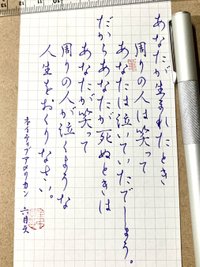 あなたが生まれたとき
周りは笑って
あなたは泣いていたでしょう。
だからあなたが死ぬときは
あなたが笑って
周りの人が泣くような
人生をおくりなさい。
ネイティブアメリカン
六月